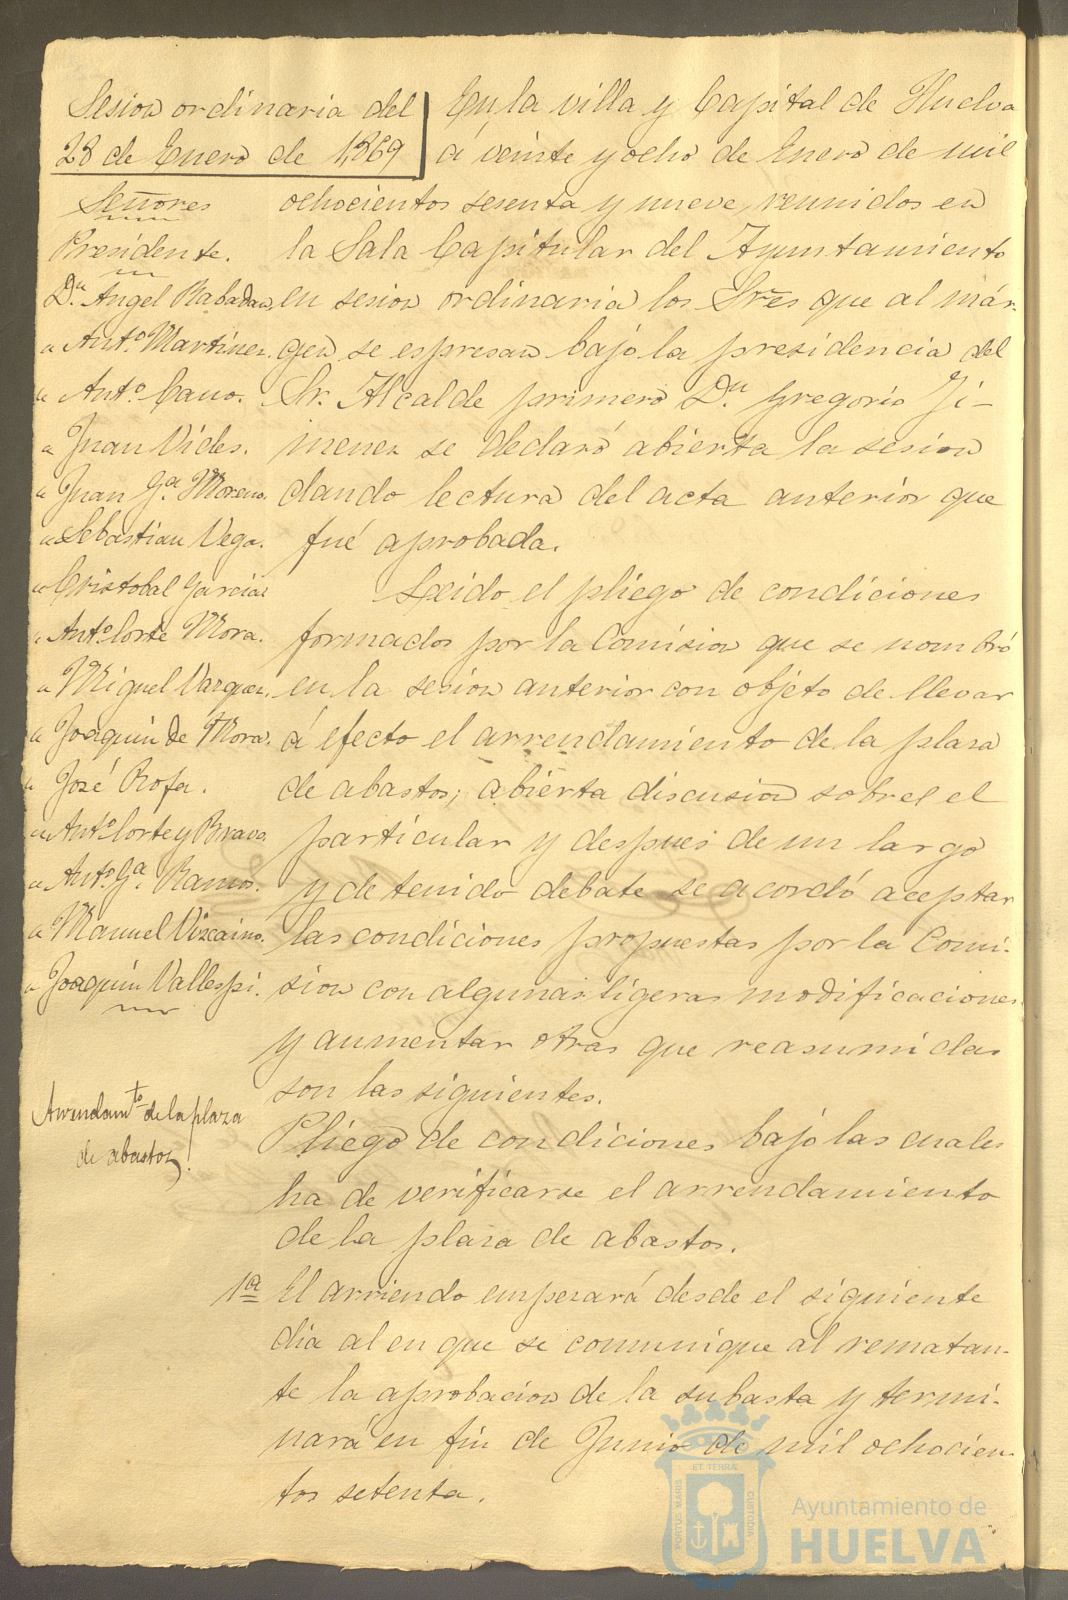 Sesion ordinaria del
28 de Enero de 1,869
Señores
Presidente.
Dn. Angel Rabadan,
" Anto. Martinez.
" Anto. Cano.
" Juan Vides.
" Juan Ga. Moreno.
" Sebastian Vega.
" Cristobal Garcia
" Anto. Corte Mora.
" Miguel Vazquez.
" Joaquin de Mora.
" José Rofa.
" Anto. Corte y Bravo.
" Anto. Ga. Ramos.
" Manuel Vizcaino.
" Joaquin Vallespi.
Arrendamto. de la plaza
de abastos
En la villa y Capital de Huelva
á veinte y ocho de Enero de mil
ochocientos sesenta y nueve, reunidos en
la Sala Capitular del Ayuntamiento
en sesion ordinaria los Sres que al már-
gen se espresan bajo la presidencia del
Sr. Alcalde primero Dn. Gregorio Ji-
menez se declaró abierta la sesion
dando lectura del acta anterior que
fué aprobada.
Leido el pliego de condiciones
formados por la Comision que se nombró
en la sesion anterior con objeto de llevar
á efecto el arrendamiento de la plaza
de abastos; abierta discusion sobre el
particular y despues de un largo
y detenido debate se acordó aceptar
las condiciones propuestas por la Comi-
sion con algunas ligeras modificaciones
y aumentar otras que reasumidas
son las siguientes.
Pliego de condiciones bajo las cuales
ha de verificarse el arrendamiento
de la plaza de abastos.
1a El arriendo empezará desde el siguiente
dia al en que se comunique al rematan-
te la aprobacion de la subasta y termi-
nará en fin de Junio de mil ochocien-
tos setenta.
ET TERRA
PORTUS MARIS
CUSTODIA
Ayuntamiento de
HUELVA